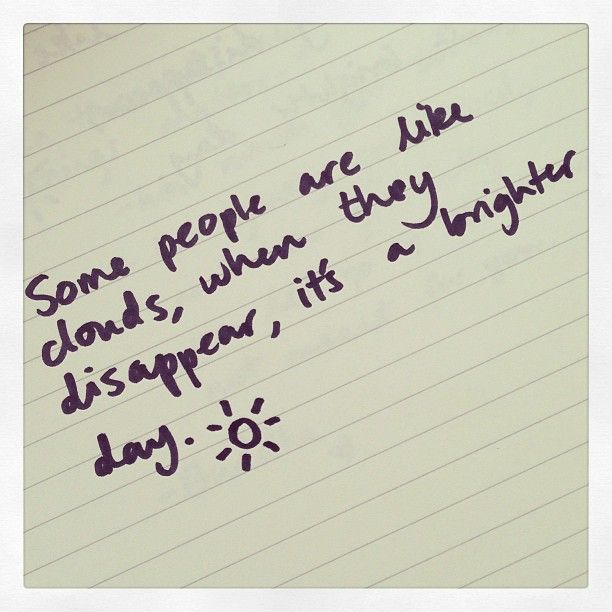 Some people are like
clouds, when they
disappear, it's a brighter
day.